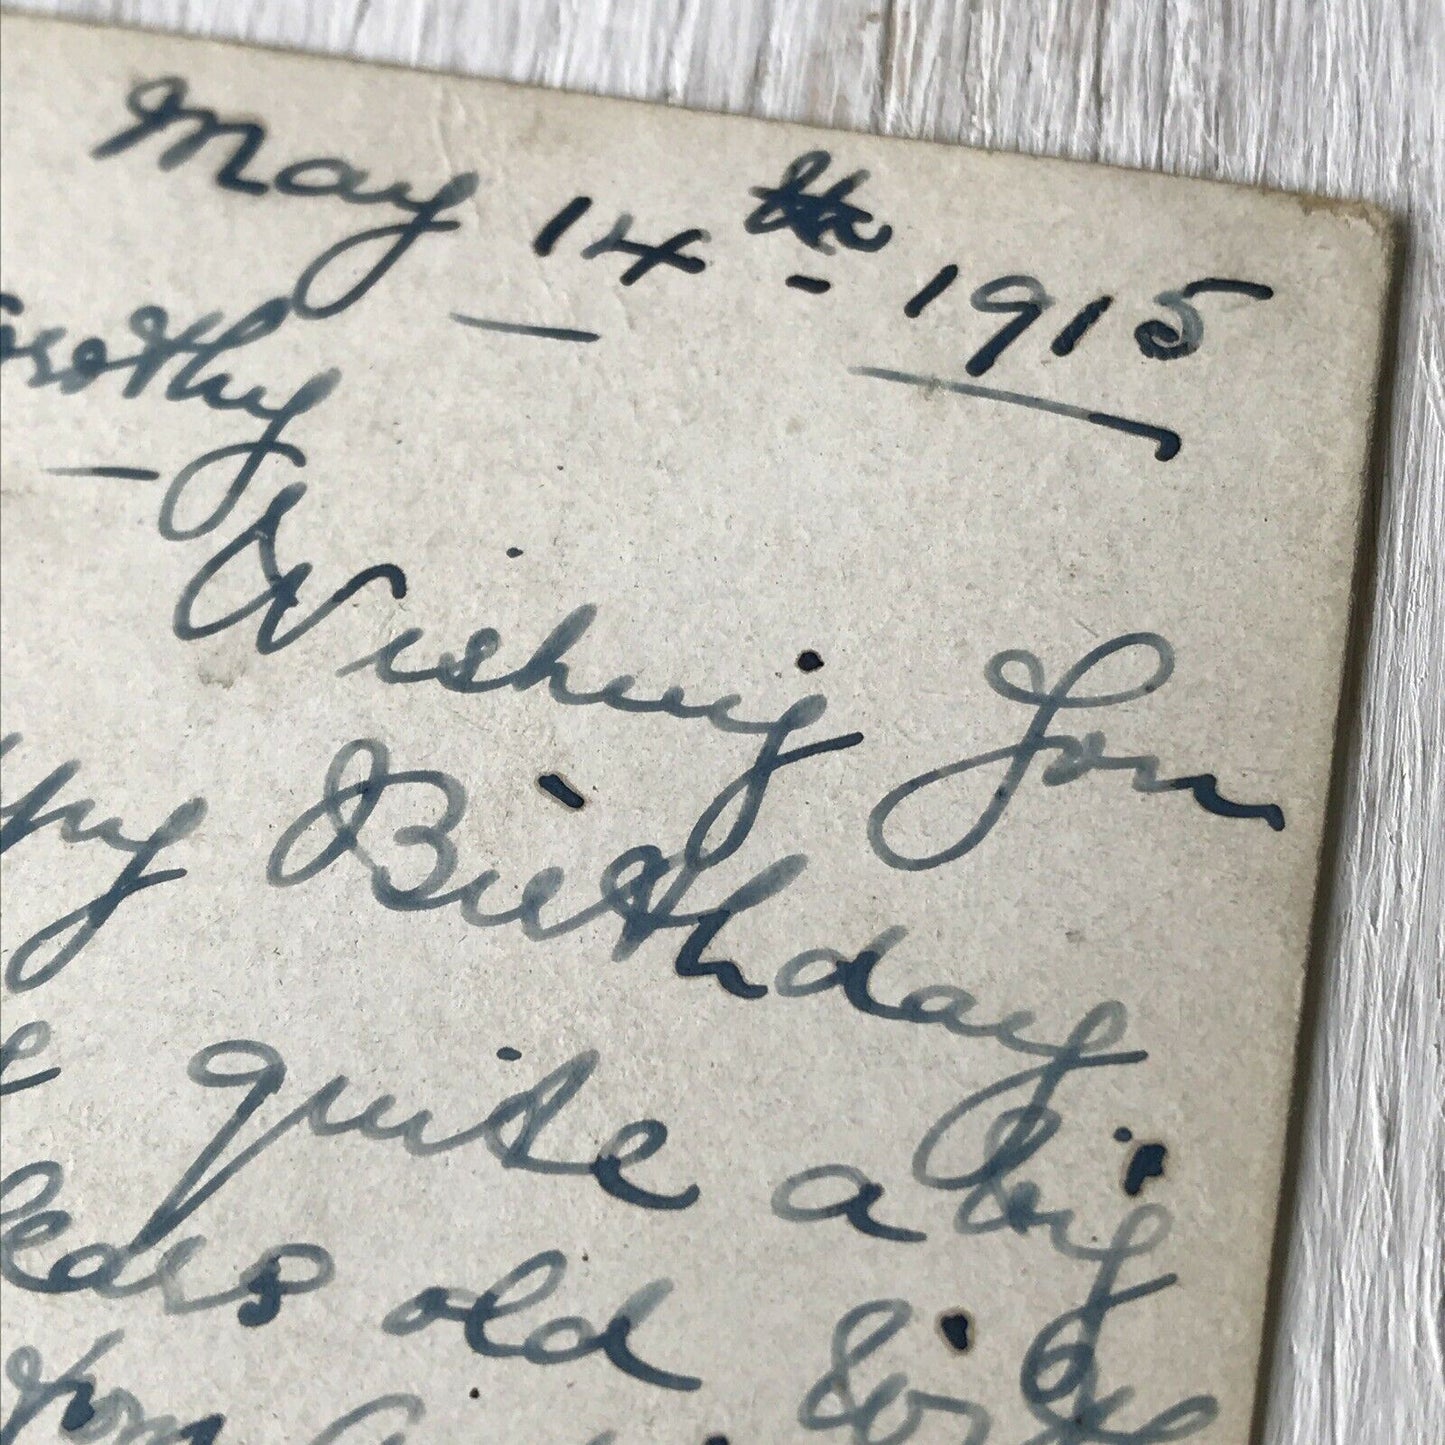 May 14th 1915
orothy
Wishing You
ppy Birthday
quite a big
years old